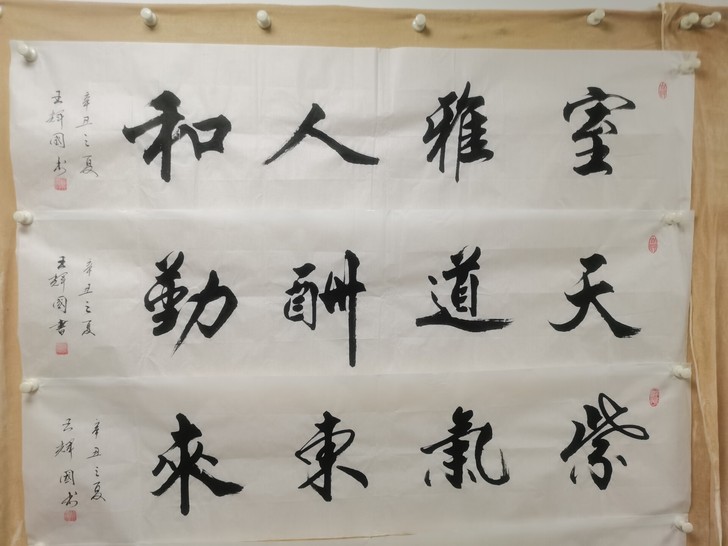 室雅人和
辛丑之夏
王輝國书
天道酬勤
辛丑之夏
王輝國書
紫氣東來
辛丑之夏
王輝國书